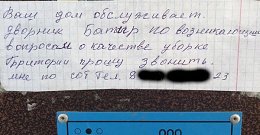 Ваш дом обслуживает.
дворник Батыр по возникающим
вопросам о качестве уборке
территории прошу звонить.
мне по сот тел. 8 23
ООО